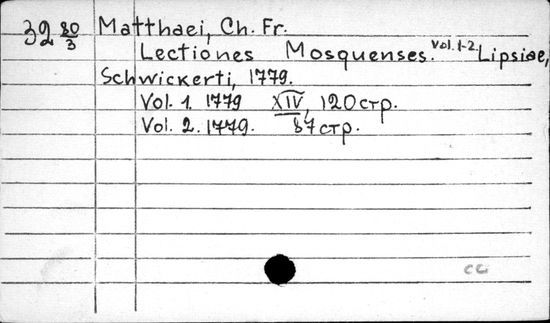 39 80/3 Matthaei, Ch. Fr.
Lectiones Mosquenses. Vol. 1-2 Lipsiae,
Schwickerti, 1779.
Vol. 1. 1779 XIV, 120 стр.
Vol. 2. 1779. 87 стр.